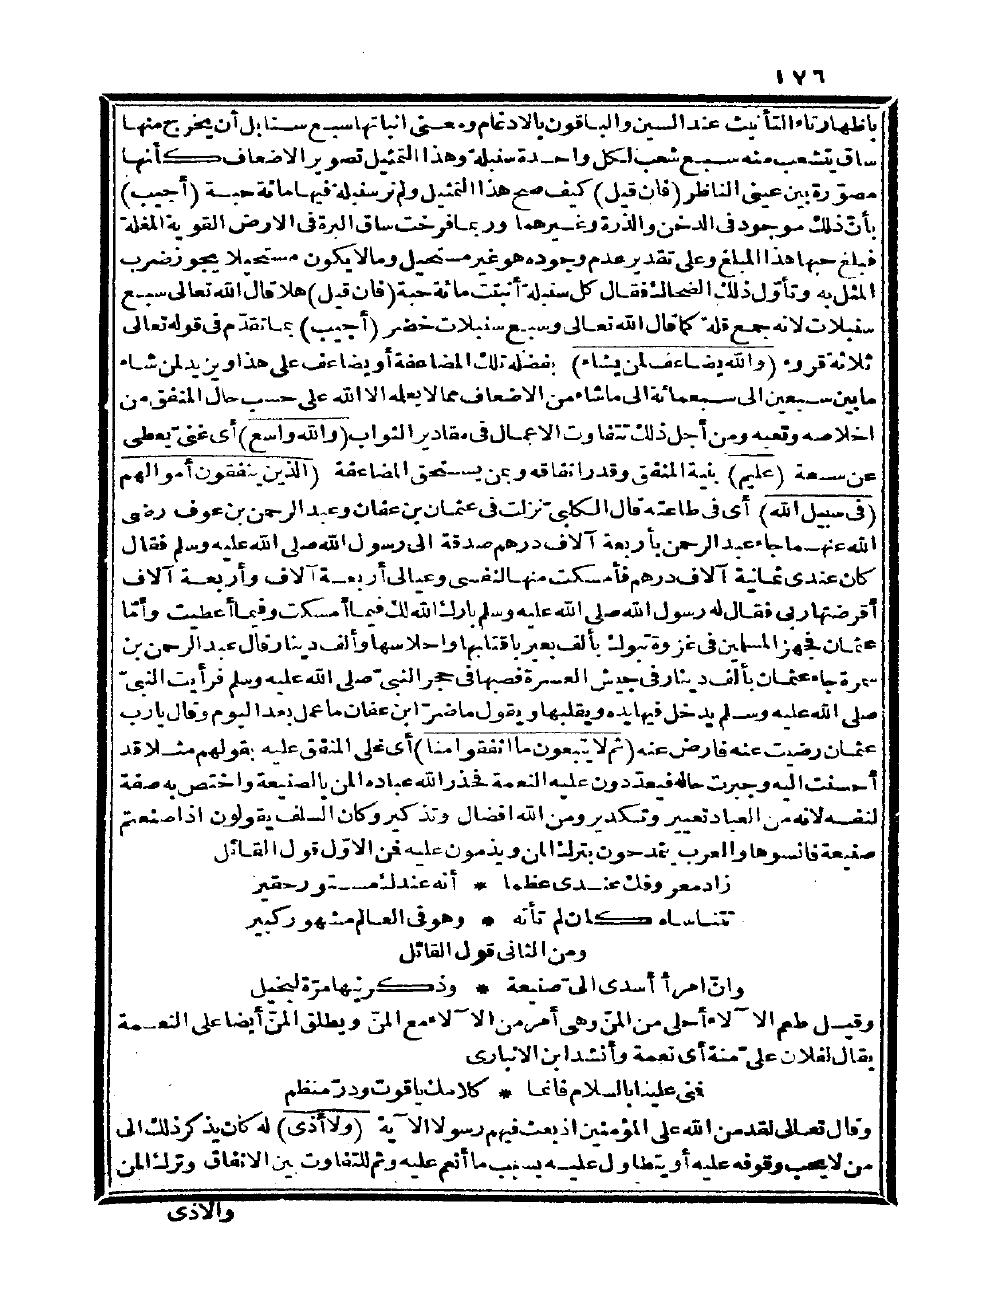 ١٧٦
باظهار تاء التأنيث عند السين والباقون بالادغام ومعنى انباتها سبع سنابل أن يخرج منها
ساق يتشعب منه سبع شعب لكل واحدة سنبلة وهذا التمثيل تصوير الاضعاف كأنها
مصوّرة بين عينى الناظر (فان قيل) كيف صح هذا التمثيل ولم تر سنبلة فيها مائة حبة (أجيب)
بأنّ ذلك موجود فى الدخن والذرة وغيرهما وربما فرخت ساق البرة فى الارض القوية المغلة
فبلغ حبها هذا المبلغ وعلى تقدير عدم وجوده هو غير مستحيل وما لا يكون مستحيلا يجوز ضرب
المثل به وتأوّل ذلك الضحاك فقال كل سنبلة أنبتت مائة حبة (فان قيل) هلا قال الله تعالى سبع
سنبلات لانه جمع قلة كما قال الله تعالى وسبع سنبلات خضر (أجيب) بما تقدّم فى قوله تعالى
ثلاثة قروء (والله يضاعف لمن يشاء) بفضله تلك المضاعفة أو يضاعف على هذا ويزيد لمن شاء
ما بين سبعين الى سبعمائة الى ما شاء من الاضعاف مما لا يعلمه الا الله على حسب حال المنفق من
اخلاصه وتعبه ومن أجل ذلك تتفاوت الاعمال فى مقادير الثواب (والله واسع) أى غنى يعطى
عن سعة (عليم) بنية المنفق وقدر انفاقه وبمن يستحق المضاعفة (الذين ينفقون أموالهم
فى سبيل الله) أى فى طاعته قال الكلبىّ نزلت فى عثمان بن عفان وعبد الرحمن بن عوف رضى
الله عنهما جاء عبد الرحمن بأربعة آلاف درهم صدقة الى رسول الله صلى الله عليه وسلم فقال
كان عندى ثمانية آلاف درهم فأمسكت منها لنفسى وعيالى أربعة آلاف وأربعة آلاف
أقرضتها ربى فقال له رسول الله صلى الله عليه وسلم بارك الله لك فيما أمسكت وفيما أعطيت وأمّا
عثمان فجهز المسلمين فى غزوة تبوك بألف بعير باقتابها واحلاسها وألف دينار قال عبد الرحمن بن
سمرة جاء عثمان بألف دينار فى جيش العسرة فصبها فى حجر النبىّ صلى الله عليه وسلم فرأيت النبىّ
صلى الله عليه وسلم يدخل فيها يده ويقلبها ويقول ما ضرّ ابن عفان ما عمل بعد اليوم وقال يارب
عثمان رضيت عنه فارض عنه (ثم لا يتبعون ما أنفقوا منا) أى على المنفق عليه بقولهم مثلا قد
أحسنت اليه وجبرت حاله فيعدّدون عليه النعمة فحذر الله عباده المن بالصنيعة واختص به صفة
لنفسه لانه من العباد تعيير وتكدير ومن الله افضال وتذكير وكان السلف يقولون اذا صنعتم
صنيعة فانسوها والعرب يمدحون بترك المن ويذمون عليه فمن الاوّل قول القائل
زاد معروفك عندى عظما * أنه عندك مستور حقير
تتناساه كان لم تأته * وهو فى العالم مشهور كبير
ومن الثانى قول القائل
وانّ امرأ أسدى الىّ صنيعة * وذكرنيها مرّة لبخيل
وقيل طعم الآلاء أحلى من المنّ وهى أمر من الآلاء مع المنّ ويطلق المنّ أيضا على النعمة
يقال لفلان علىّ منة أى نعمة وأنشد ابن الانبارى
فمنى علينا بالسلام فانما * كلامك ياقوت ودرّ منظم
وقال تعالى لقد من الله على المؤمنين اذ بعث فيهم رسولا الآية (ولا أذى) له كان يذكر ذلك الى
من لا يحب وقوفه عليه أو يتطاول عليه بسبب ما أنعم عليه وثم للتفاوت بين الانفاق وترك المن
والاذى